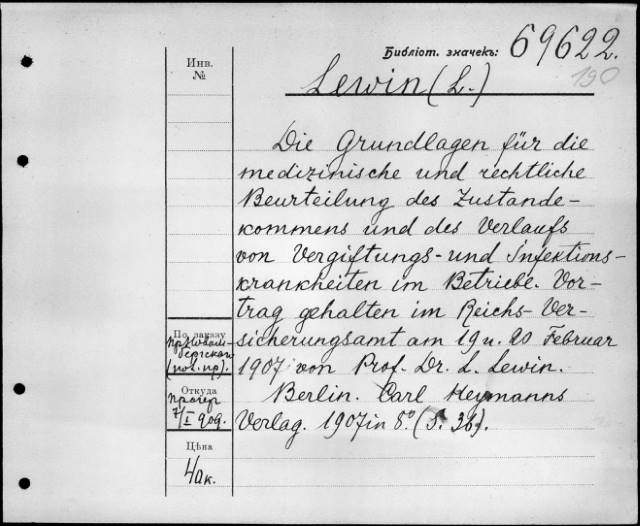 Библіот. значекъ: 69622.
190
Инв.
№
Lewin (L.)
Die Grundlagen für die
medizinische und rechtliche
Beurteilung des Zustande-
kommens und des Verlaufs
von Vergiftungs- und Infektions-
krankheiten im Betriebe. Vor-
trag gehalten im Reichs-Ver-
sicherungsamt am 19 u. 20 Februar
1907 von Prof. Dr. L. Lewin.
Berlin. Carl Heymanns
Verlag. 1907 in 8° (S. 36).
По заказу
(пол. пр).
Откуда
7/I 909.
Цѣна